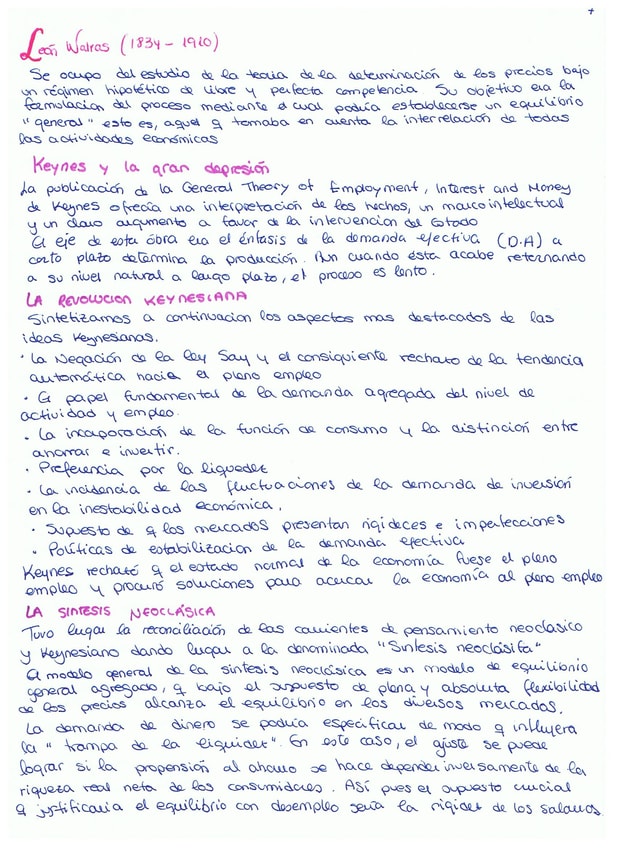 León Walras (1834 - 1910)
Se ocupo del estudio de la teoria de la determinación de los precios bajo
un régimen hipotético de libre y perfecta competencia. Su objetivo era la
formulacion del proceso mediante el cual podría establecerse un equilibrio
"general" esto es, aquel q tomaba en cuenta la interrelación de todas
las actividades económicas
Keynes y la gran depresión
La publicación de la General Theory of Employment, Interest and Money
de Keynes ofrecía una interpretación de los hechos, un marco intelectual
y un claro argumento a favor de la intervencion del Estado
El eje de esta obra era el énfasis de la demanda efectiva (D.A) a
corto plazo determina la producción. Aun cuando ésta acabe retornando
a su nivel natural a largo plazo, el proceso es lento.
LA REVOLUCION KEYNESIANA
Sintetizamos a continuacion los aspectos mas destacados de las
ideas Keynesianas.
· La Negación de la ley Say y el consiguiente rechazo de la tendencia
automática hacia el pleno empleo
· El papel fundamental de la demanda agregada del nivel de
actividad y empleo.
· La incorporación de la función de consumo y la distincion entre
ahorrar e invertir.
· Preferencia por la liquedez
· La incidencia de las fluctuaciones de la demanda de inversión
en la inestabilidad económica.
· Supuesto de q los mercados presentan rigideces e imperfecciones
· Políticas de estabilizacion de la demanda efectiva
Keynes rechazó q el estado normal de la economía fuese el pleno
empleo y procuró soluciones para acercar la economía al pleno empleo
LA SINTESIS NEOCLÁSICA
Tuvo lugar la reconciliación de las corrientes de pensamiento neoclasico
y Keynesiano dando lugar a la denominada "Sintesis neoclásica"
El modelo general de la sintesis neoclásica es un modelo de equilibrio
general agregado, q bajo el supuesto de plena y absoluta flexibilidad
de los precios alcanza el equilibrio en los diversos mercados.
La demanda de dinero se podría especificar de modo q influyera
la "trampa de la liquidez". En este caso, el ajuste se puede
lograr si la propensión al ahorro se hace depender inversamente de la
riqueza real neta de los consumidores. Así pues el supuesto crucial
q justificaria el equilibrio con desempleo seria la rigidez de los salarios.